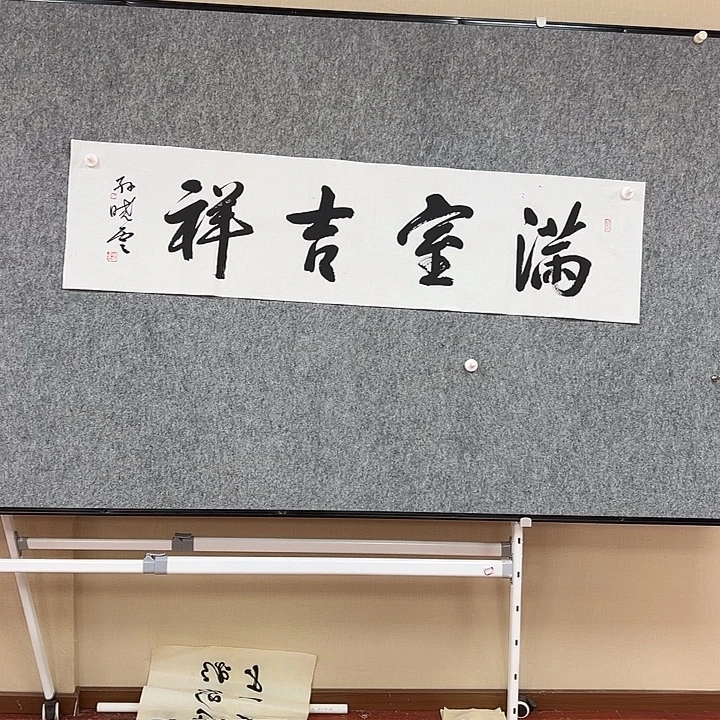 满室吉祥
孙晓云